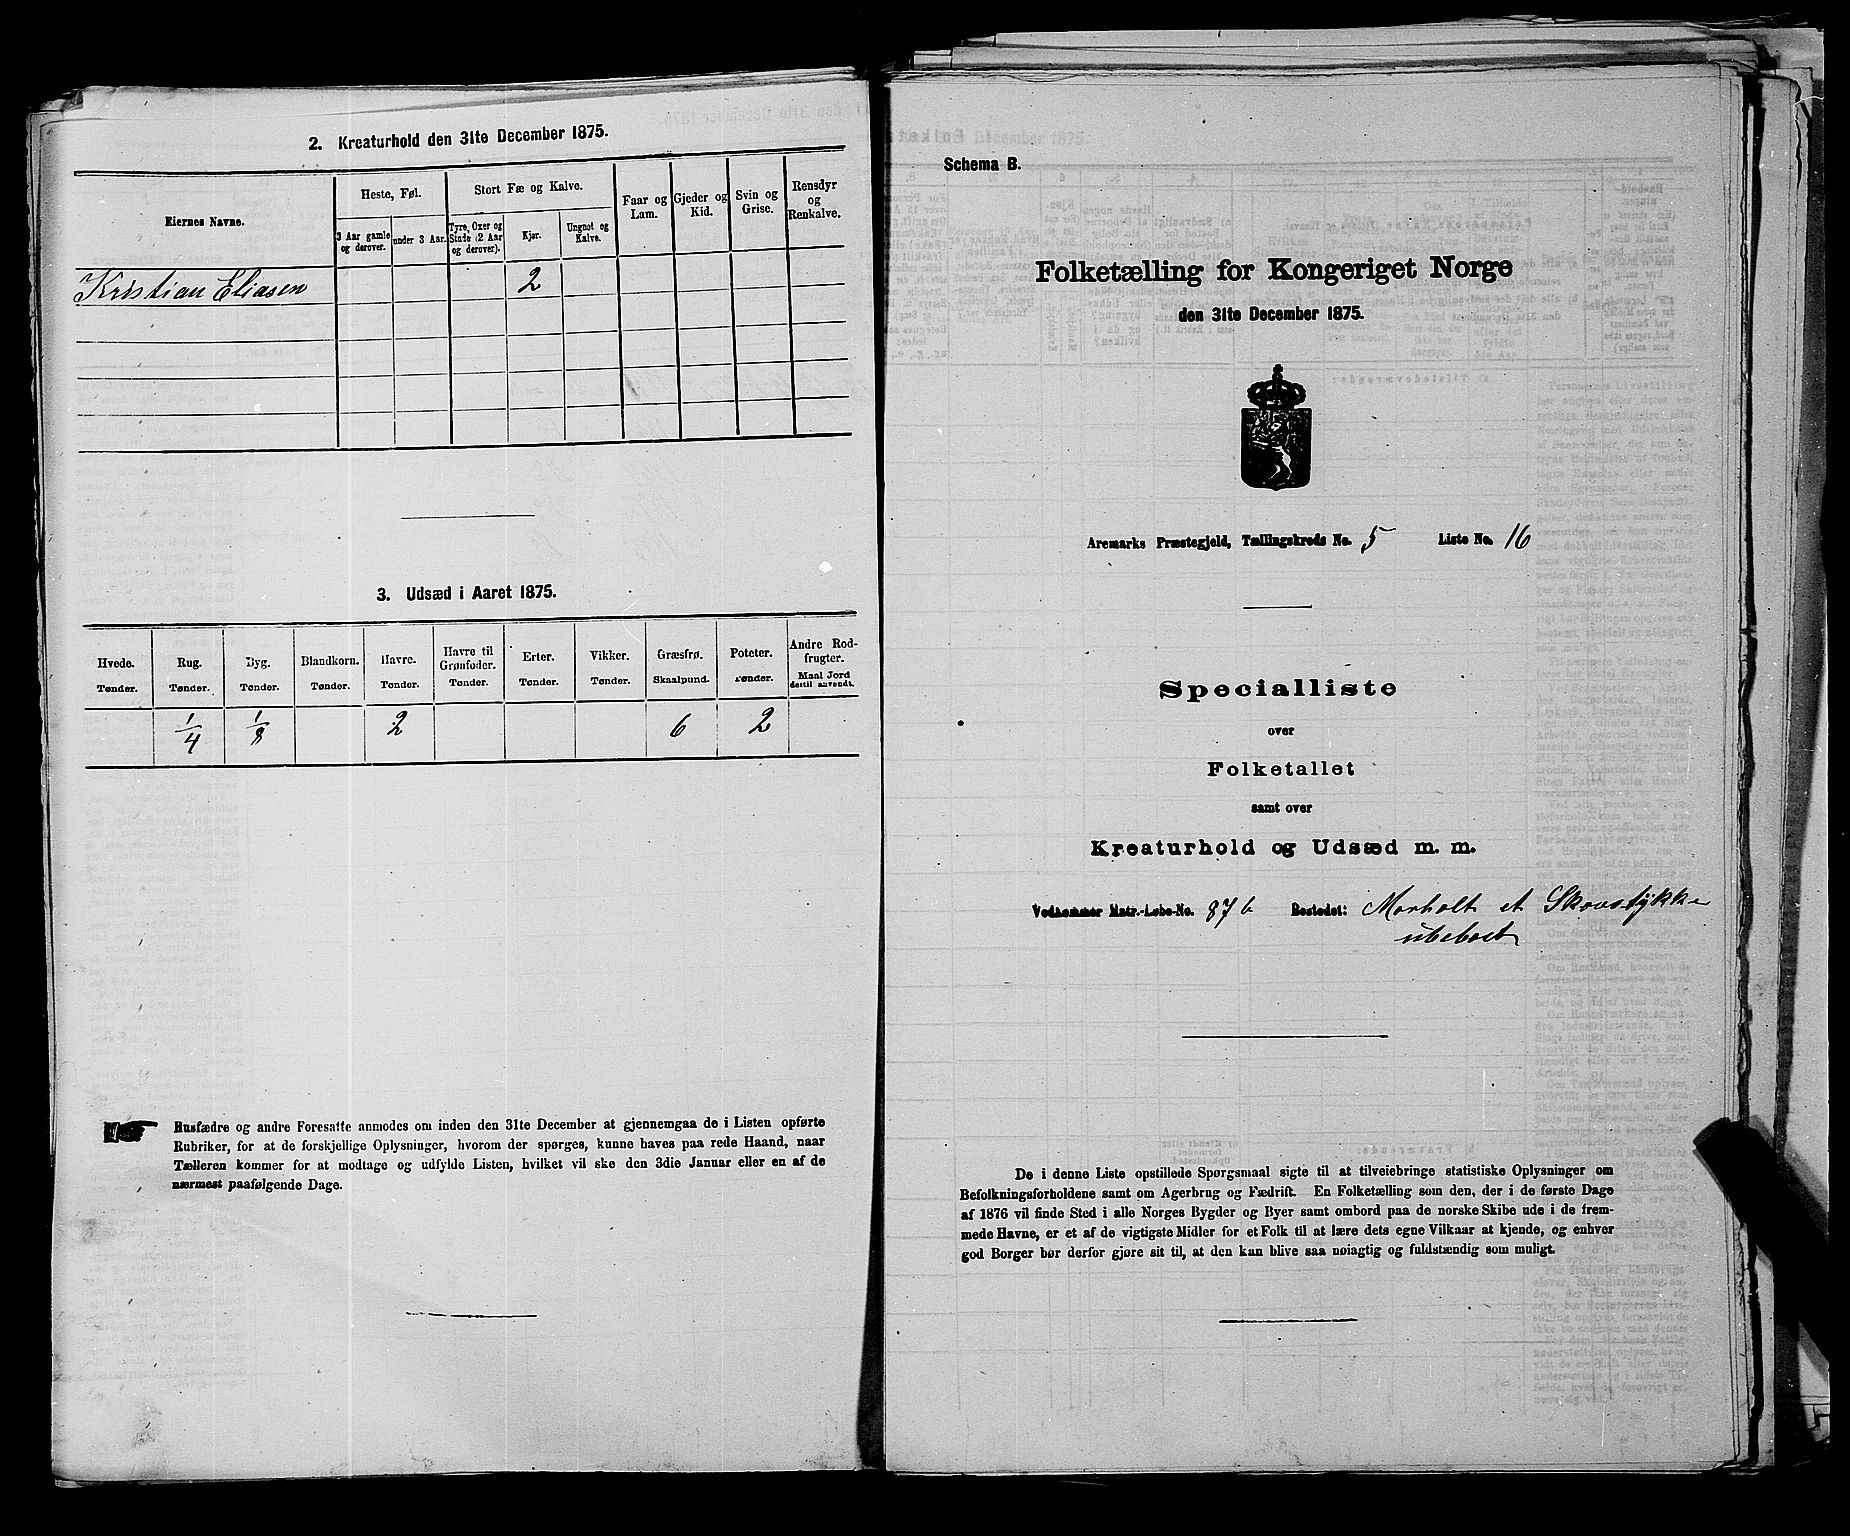 2. Kreaturhold den 31te December 1875.
Eiernes Navne.
Heste, Føl.
3 Aar gamle og derover.
under 3 Aar.
Stort Fæ og Kalve.
Tyre, Oxer og Stude (2 Aar og derover).
Kjør.
Ungnot og Kalve.
Faar og Lam.
Gjeder og Kid.
Svin og Grise.
Rensdyr og Renkalve.
Kristian Eliasen 2
3. Udsæd i Aaret 1875.
Hvede. Tønder.
Rug. Tønder.
Byg. Tønder.
Blandkorn. Tønder.
Havre. Tønder.
Havre til Grønfoder. Tønder.
Erter. Tønder.
Vikker. Tønder.
Græsfrø. Skaalpund.
Poteter. Tønder.
Andre Rodfrugter. Maal Jord dertil anvendt.
1/4 1/8 2 6 2
Husfædre og andre Foresatte anmodes om inden den 31te December at gjennemgaa de i Listen opførte
Rubriker, for at de forskjellige Oplysninger, hvorom der spørges, kunne haves paa rede Haand, naar
Tælleren kommer for at modtage og udfylde Listen, hvilket vil ske den 3die Januar eller en af de
nærmest paafølgende Dage.
Schema B.
Folketælling for Kongeriget Norge
den 31te December 1875.
Aremarks Præstegjeld, Tællingskreds No. 5 Liste No. 16
Specialliste
over
Folketallet
samt over
Kreaturhold og Udsæd m. m.
Vedkommer Matr.-Løbe-No. 87 b Bostedet: Morholt et Skovstykke
ubeboet
De i denne Liste opstillede Spørgsmaal sigte til at tilveiebringe statistiske Oplysninger om
Befolkningsforholdene samt om Agerbrug og Fædrift. En Folketælling som den, der i de første Dage
af 1876 vil finde Sted i alle Norges Bygder og Byer samt ombord paa de norske Skibe ude i de frem-
mede Havne, er et af de vigtigste Midler for et Folk til at lære dets egne Vilkaar at kjende, og enhver
god Borger bør derfor gjøre sit til, at den kan blive saa nøiagtig og fuldstændig som muligt.